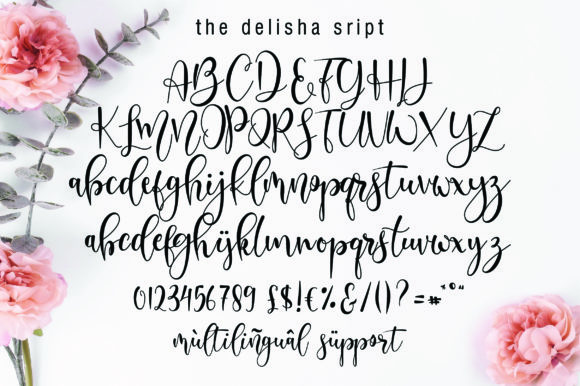 the delisha sript
ABCDEFGHIJ
KLMNOPQRSTUVWXYZ
abcdefghijklmnopqrstuvwxyz
abcdefghijklmnopqrstuvwxyz
0123456789 £$!€%&/()?=#*°"
mùltilingüâl süpport